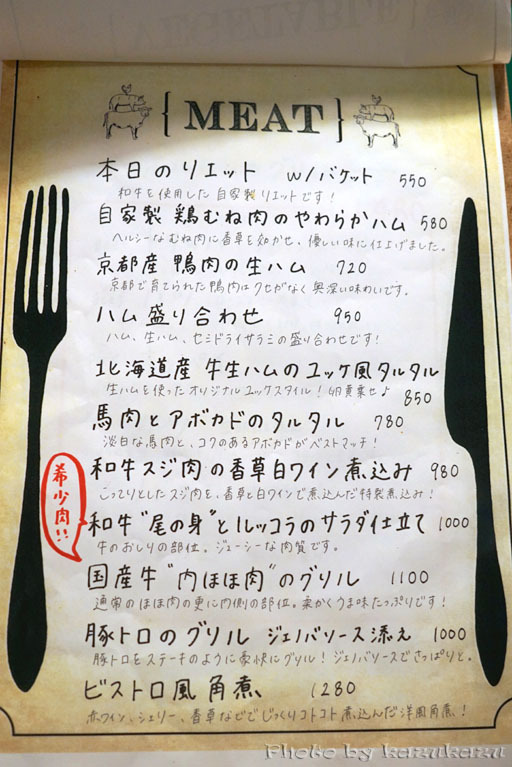 {MEAT}
本日のリエット w/バケット 550
和牛を使用した自家製リエットです!
自家製 鶏むね肉のやわらかハム 580
ヘルシーなむね肉に香草を効かせ、優しい味に仕上げました。
京都産 鴨肉の生ハム 720
京都で育てられた鴨肉はクセがなく奥深い味わいです。
ハム盛り合わせ 950
ハム、生ハム、セミドライサラミの盛り合わせです!
北海道産 牛生ハムのユッケ風タルタル
生ハムを使ったオリジナルユッケスタイル!卵黄乗せ♪ 850
馬肉とアボカドのタルタル 780
淡白な馬肉と、コクのあるアボカドがベストマッチ!
和牛スジ肉の香草白ワイン煮込み 980
こってりとしたスジ肉を、香草と白ワインで煮込んだ特製煮込み!
希少肉!!
和牛"尾の身"とルッコラのサラダ仕立て 1000
牛のおしりの部位。ジューシーな肉質です。
国産牛"内ほほ肉"のグリル 1100
通常のほほ肉の更に内側の部位。柔かくうま味たっぷりです!
豚トロのグリル ジェノバソース添え 1000
豚トロをステーキのように豪快にグリル!ジェノバソースでさっぱりと。
ビストロ風角煮 1280
赤ワイン、シェリー、香草などでじっくりコトコト煮込んだ洋風角煮!
Photo by kazukazu